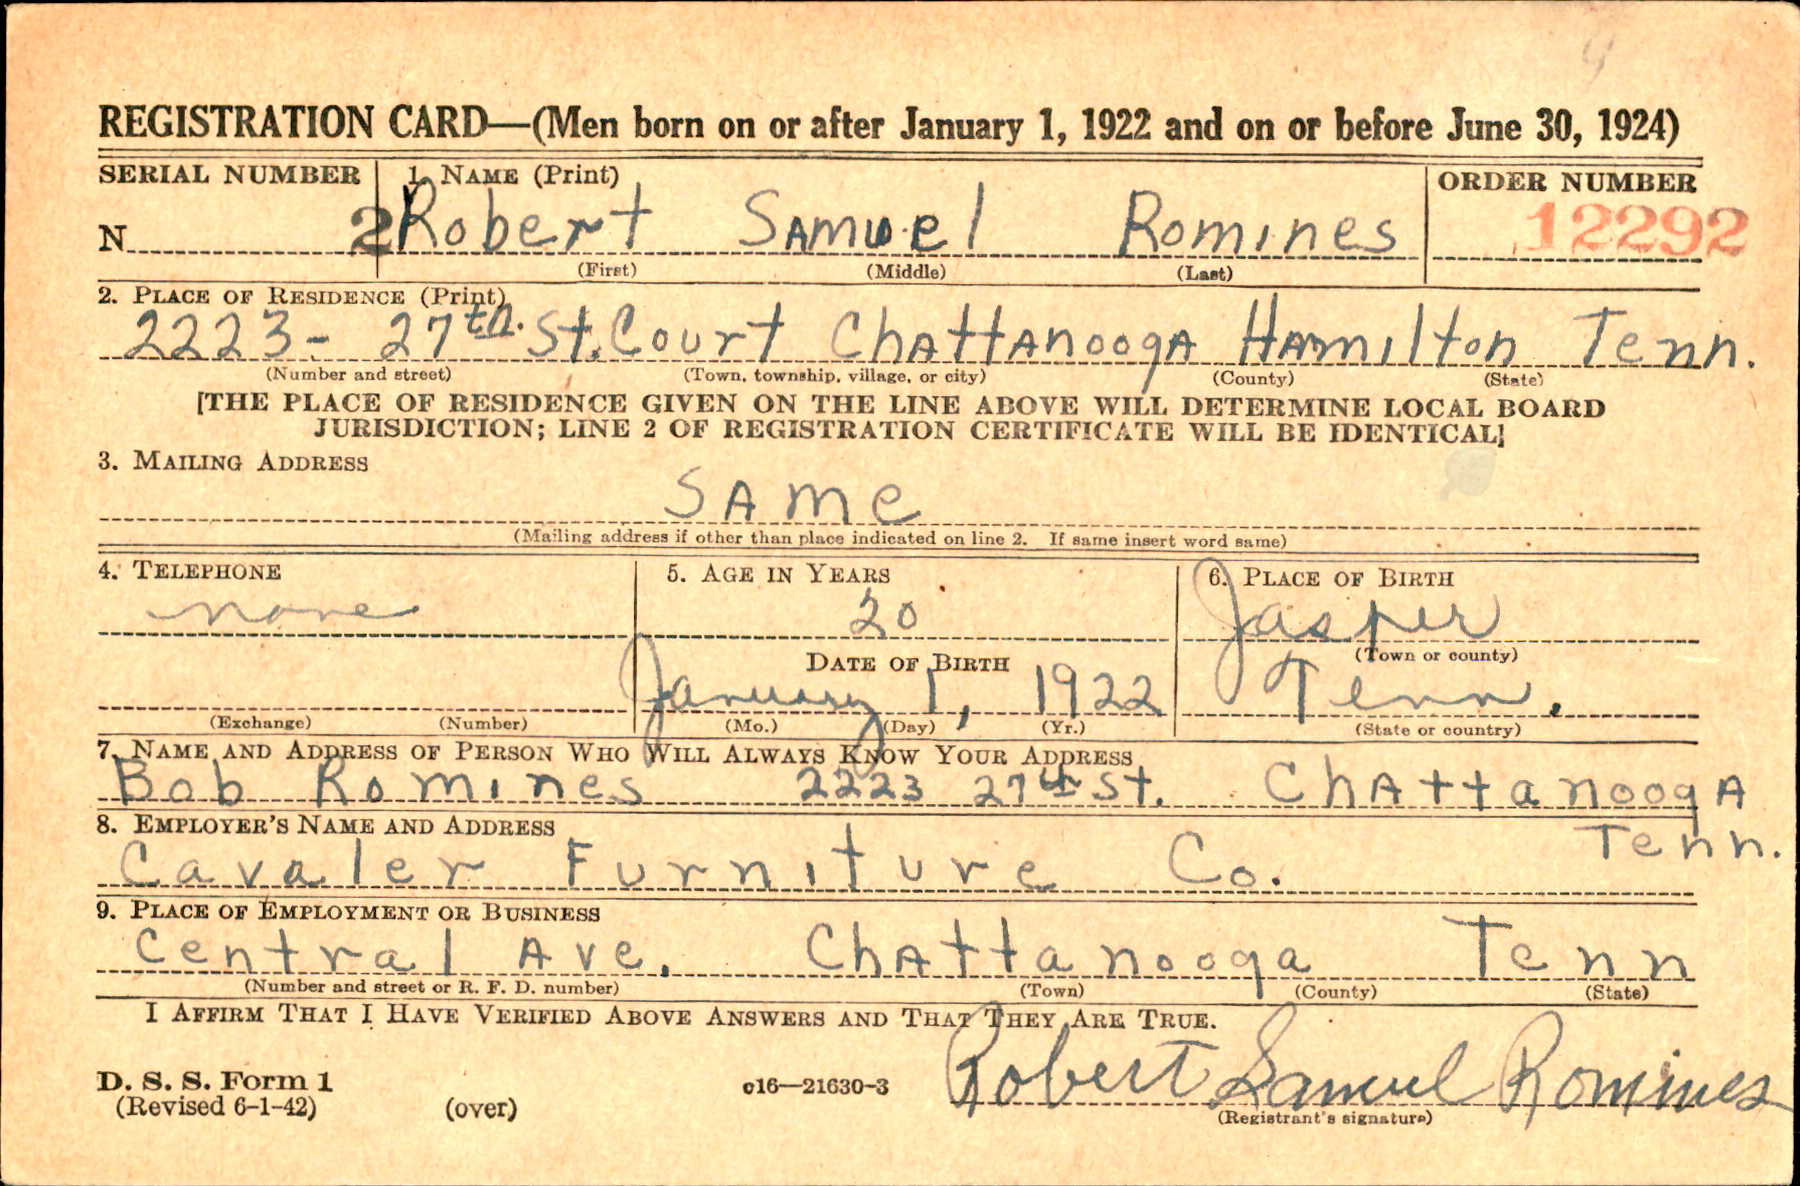 REGISTRATION CARD—(Men born on or after January 1, 1922 and on or before June 30, 1924)
SERIAL NUMBER 1. NAME (Print) ORDER NUMBER
N 2 Robert Samuel Romines 12292
(First) (Middle) (Last)
2. PLACE OF RESIDENCE (Print)
2223- 27th. St. Court Chattanooga Hamilton Tenn.
(Number and street) (Town, township, village, or city) (County) (State)
[THE PLACE OF RESIDENCE GIVEN ON THE LINE ABOVE WILL DETERMINE LOCAL BOARD
JURISDICTION; LINE 2 OF REGISTRATION CERTIFICATE WILL BE IDENTICAL]
3. MAILING ADDRESS
SAme
(Mailing address if other than place indicated on line 2. If same insert word same)
4. TELEPHONE 5. AGE IN YEARS 6. PLACE OF BIRTH
none 20 Jasper
DATE OF BIRTH (Town or county)
January 1, 1922 Tenn.
(Exchange) (Number) (Mo.) (Day) (Yr.) (State or country)
7. NAME AND ADDRESS OF PERSON WHO WILL ALWAYS KNOW YOUR ADDRESS
Bob Romines 2223 27th St. Chattanooga
8. EMPLOYER'S NAME AND ADDRESS Tenn.
Cavaler Furniture Co.
9. PLACE OF EMPLOYMENT OR BUSINESS
Central Ave. Chattanooga Tenn
(Number and street or R. F. D. number) (Town) (County) (State)
I AFFIRM THAT I HAVE VERIFIED ABOVE ANSWERS AND THAT THEY ARE TRUE.
D. S. S. Form 1 c16—21630-3 Robert Samuel Romines
(Revised 6-1-42) (over) (Registrant's signature)